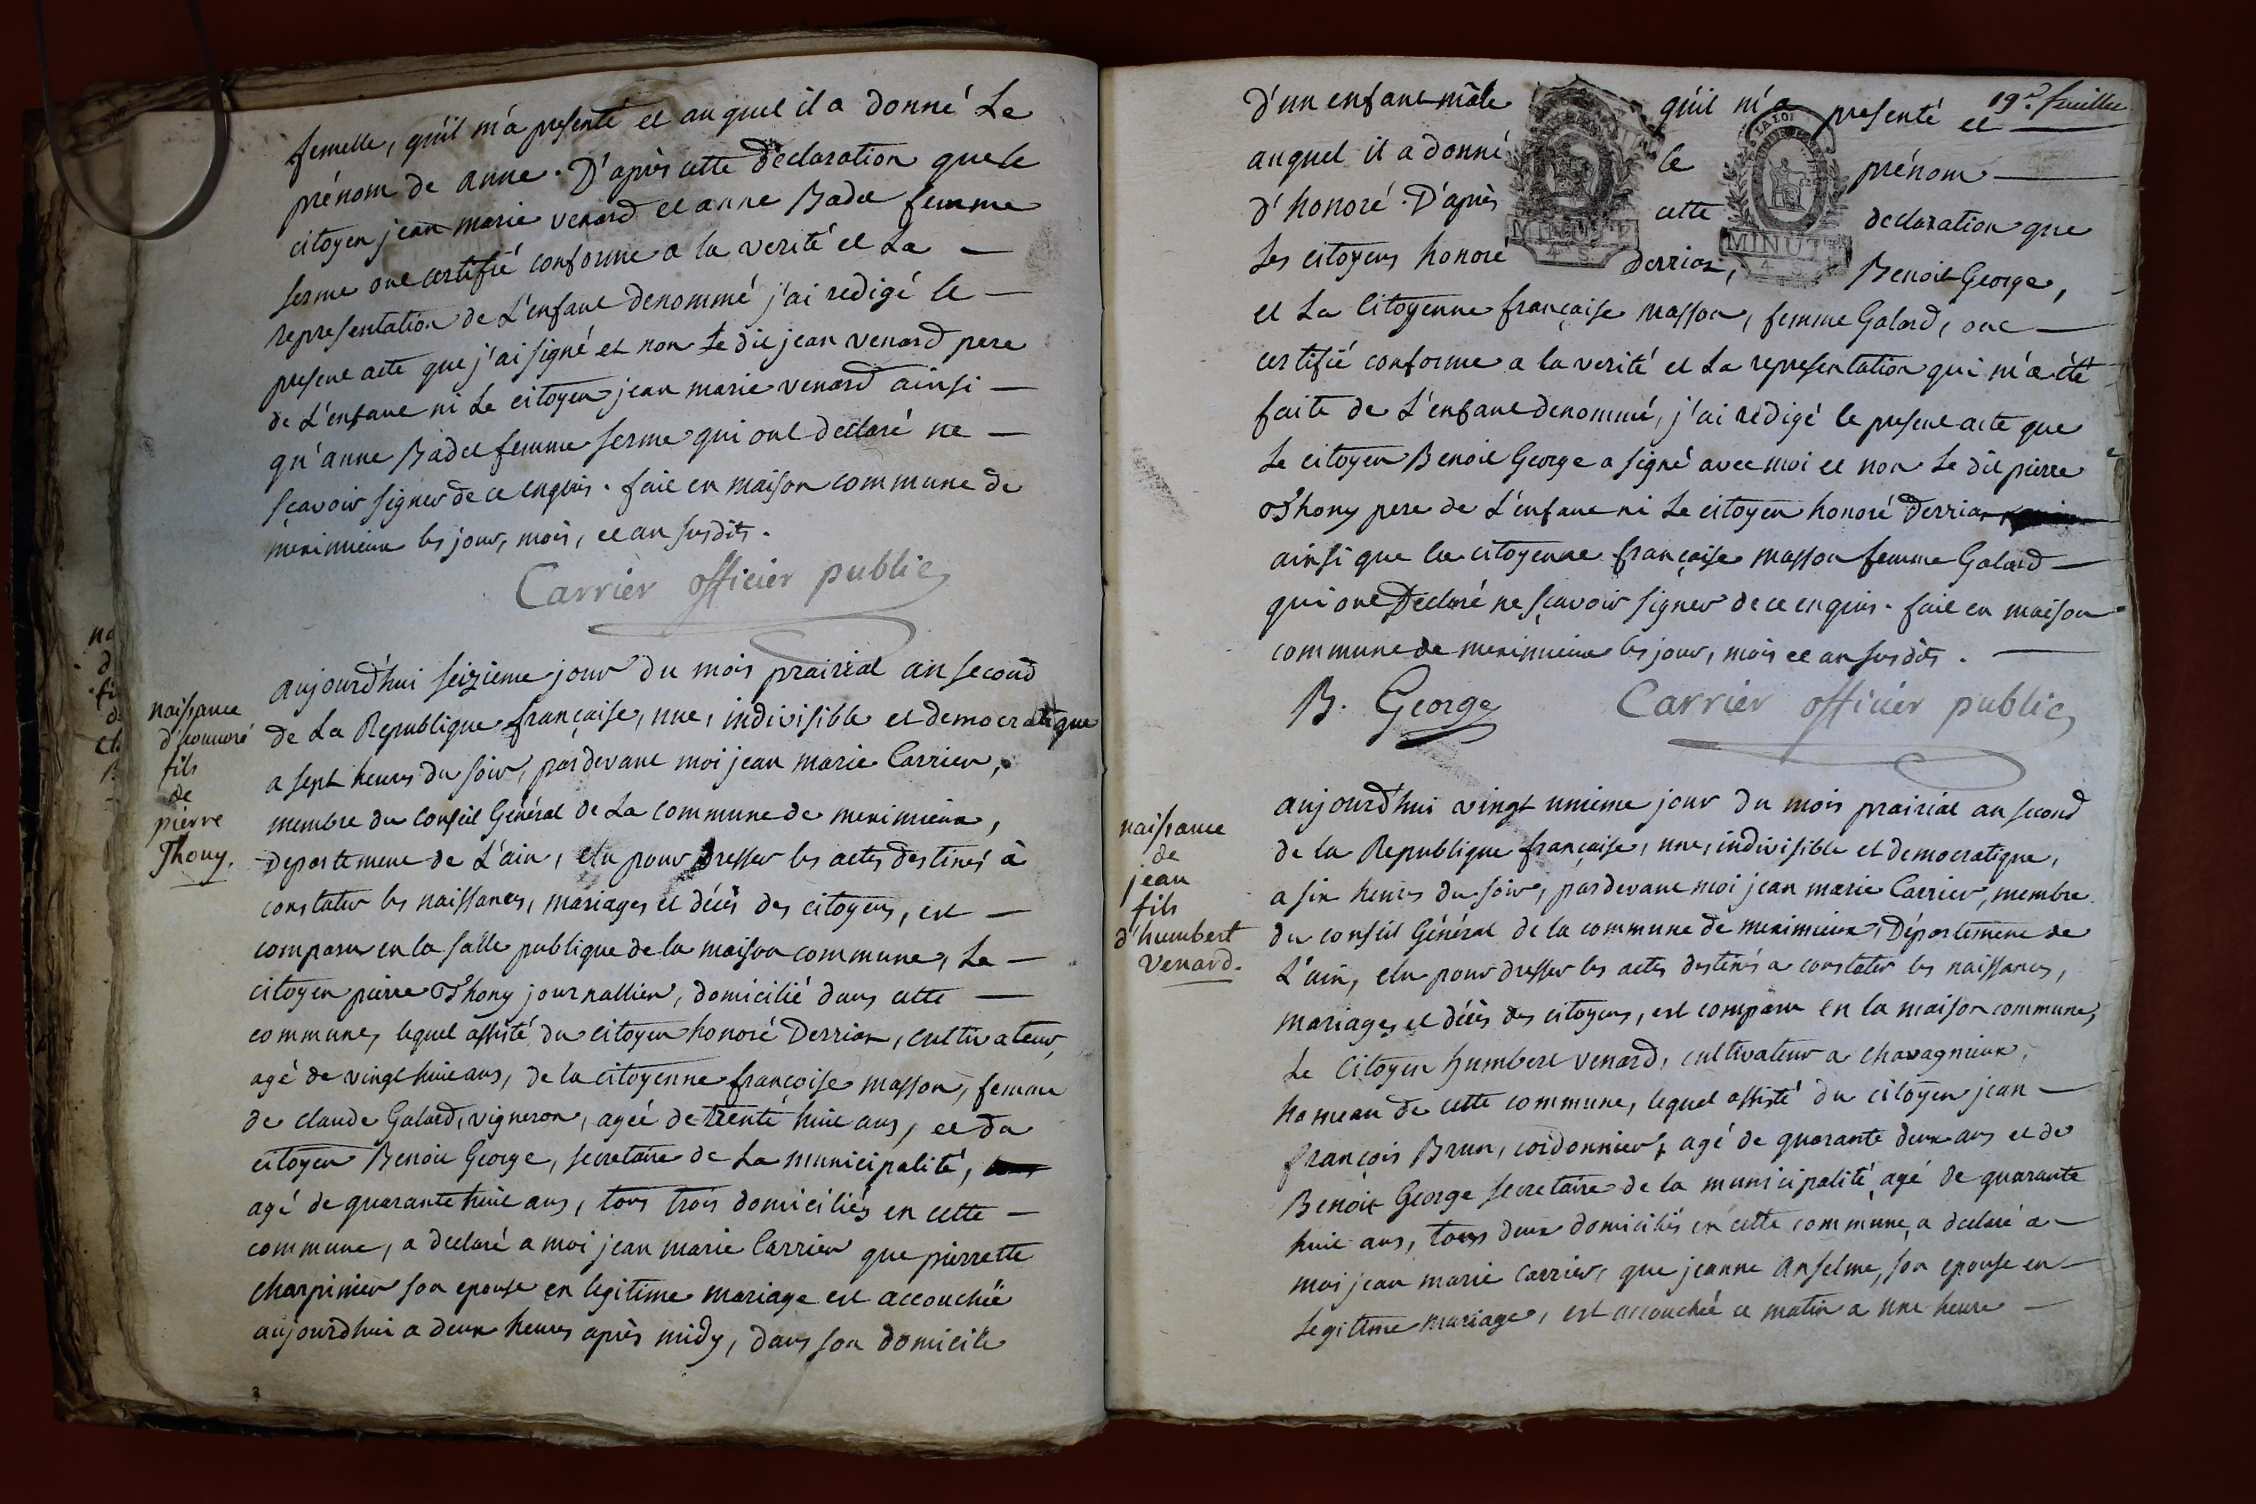 femelle, qu'il m'a presenté et auquel il a donné Le
prénom de anne. D'après cette déclaration que le
citoyen jean marie venard et anne Badel femme
serme ont certifié conforme a la verité et La —
representation de L'enfant denommé j'ai redigé le —
present acte que j'ai signé et non Le dit jean venard pere
de L'enfant ni Le citoyen jean marie venard ainsi —
qu'anne Badel femme serme qui ont declaré ne —
sçavoir signer de ce enquis. fait en maison commune de
meximieux les jour, mois, et an susdits.
Carrier officier public
naissance
d'honnoré
fils
de
pierre
Thony.
aujourd'hui seizieme jour du mois prairial an second
de La Republique française, une, indivisible et democratique
a sept heures du soir, pardevant moi jean marie Carrier,
membre du Conseil Général de La commune de meximieux,
departement de L'ain, elu pour dresser les actes destinés à
constater les naissances, mariages et décès des citoyens, est —
comparu en la salle publique de la maison commune, Le —
citoyen pierre Thony journallier, domicilié dans cette —
commune, lequel assisté du citoyen honoré Derrias, cultivateur,
agé de vingt huit ans, de la citoyenne françoise masson, femme
de claude Galard, vigneron, agée de trente huit ans, et du
citoyen Benoit George, secretaire de La municipalité,
agé de quarante huit ans, tous trois domiciliés en cette —
commune, a declaré a moi jean marie Carrier que pierrette
charpinier son epouse en legitime mariage est accouchée
aujourdhui a deux heures après midy, dans son domicile
19e feuillet
d'un enfant mâle qu'il m'a presenté et
auquel il a donné le prénom —
d'honoré. D'après cette declaration que
Les citoyens honoré derrias, Benoit George,
et La Citoyenne française masson, femme Galard, ont —
certifié conforme a la verité et La representation qui m'a été
faite de L'enfant denommé, j'ai redigé le present acte que
Le citoyen Benoit George a signé avec moi et non Le dit pierre
Thony pere de L'enfant ni Le citoyen honoré Derrias
ainsi que la citoyenne française masson femme Galard —
qui ont Declaré ne sçavoir signer de ce enquis. fait en maison
commune de meximieux les jour, mois et an susdits. —
B. George Carrier officier public
naissance
de
jean
fils
d'humbert
Venard.
aujourd'hui vingt unieme jour du mois prairial an second
de la Republique française, une, indivisible et democratique,
a six heures du soir, pardevant moi jean marie Carrier, membre
du conseil Général de la commune de meximieux, Département de
L'ain, elu pour dresser les actes destinés a constater les naissances,
mariages et décès des citoyens, est comparu en la maison commune,
Le Citoyen humbert venard, cultivateur a chavagnieux,
hameau de cette commune, lequel assisté du citoyen jean —
françois Brun, cordonnier, agé de quarante deux ans et de
Benoit George secretaire de la municipalité agé de quarante
huit ans, tous deux domiciliés en cette commune, a declaré a —
moi jean marie carrier, que jeanne Anselme, son epouse en —
Legitime mariage, est accouchée ce matin a une heure —
LA LOI
MINUTE
MINUTE